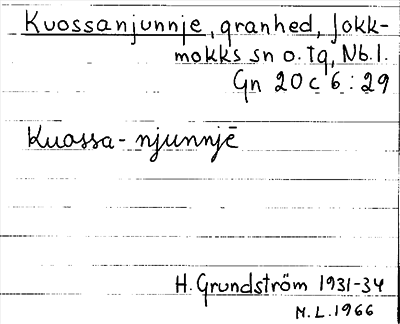 Kuossanjunnje, granhed, Jokk-
mokks sn o. tg, Nb.l.
Gn 20 c 6 : 29
Kuossa-njunnjē
H. Grundström 1931-34
M.L. 1966